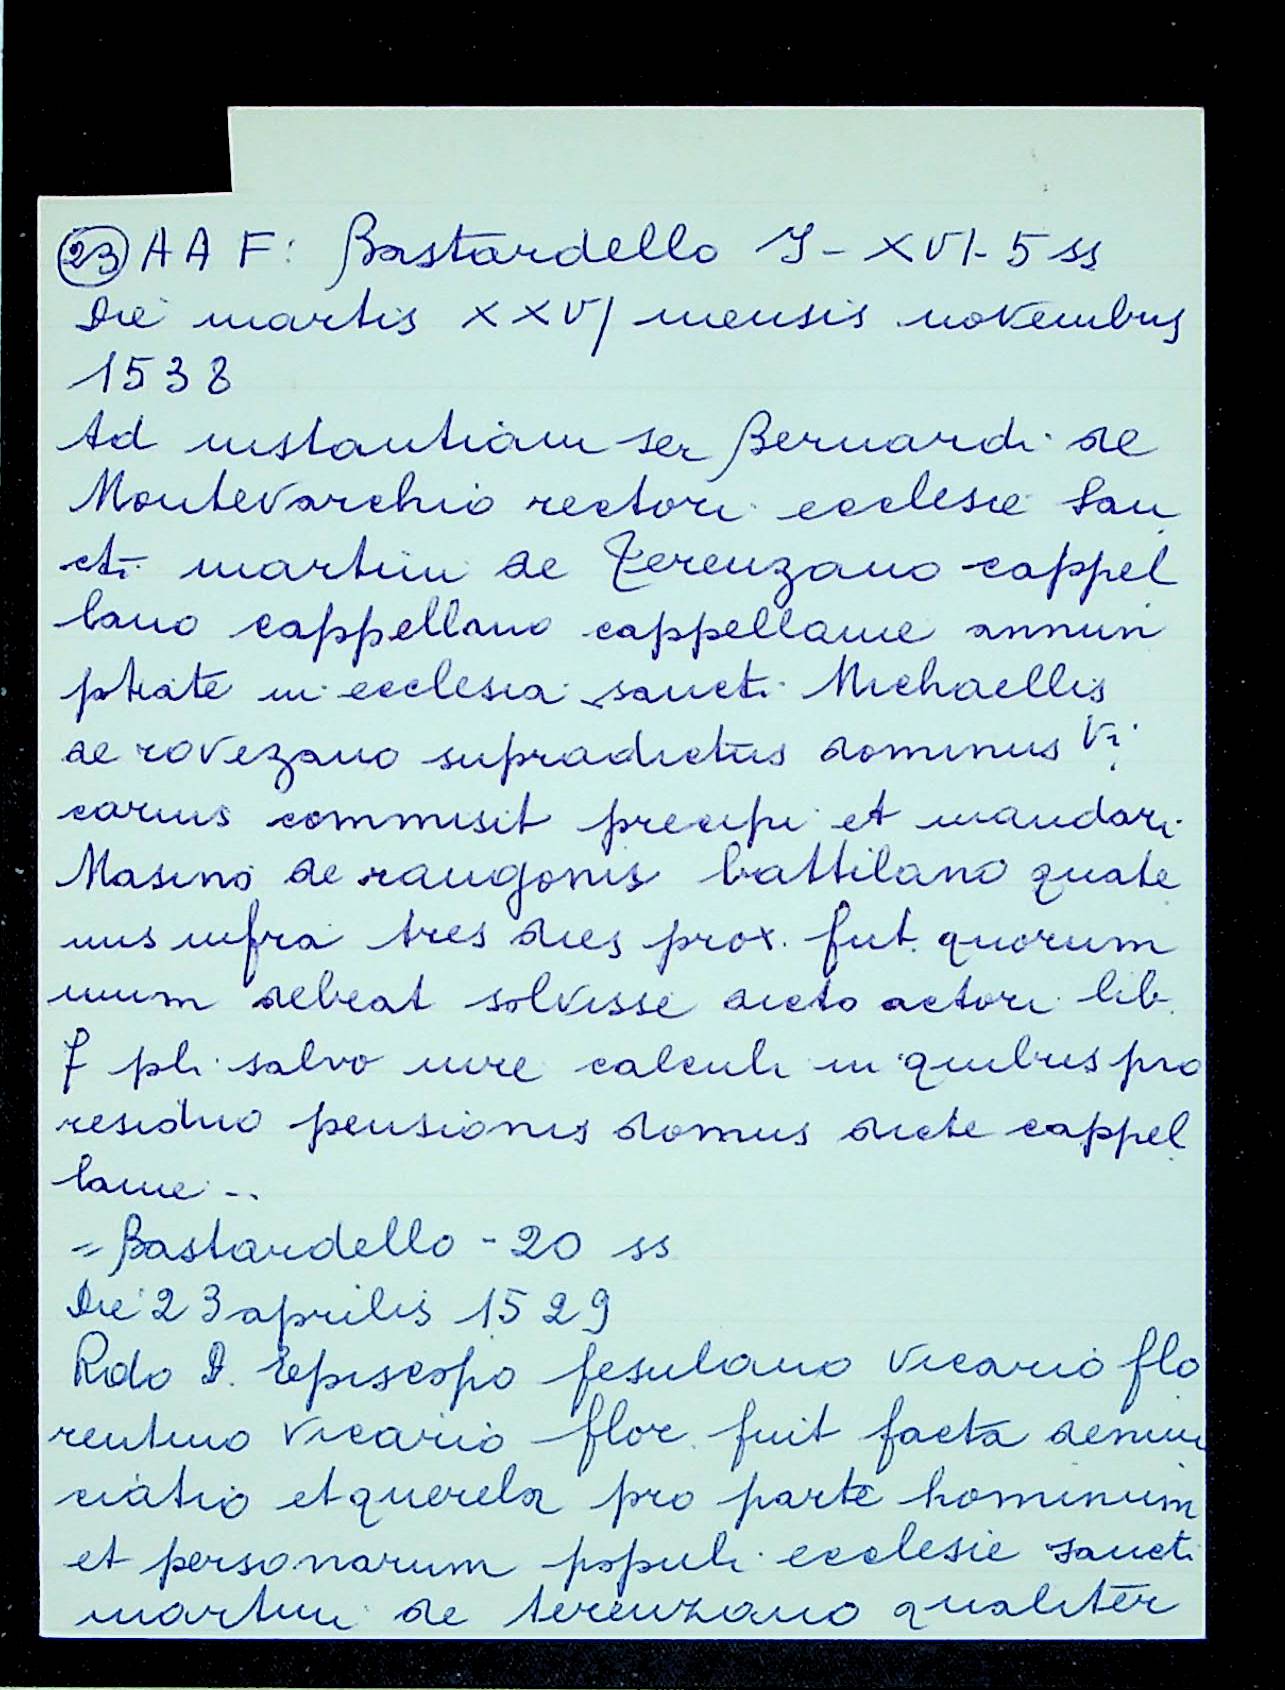 23 A A F: Bastardello I - XVI - 5 ss
Die martis XXVI mensis novembris
1538
Ad instantiam ser Bernardi de
Montevarchio rectori ecclesie San
cti martini de Terenzano cappel
lano cappellano cappellanie annun
ptiate in ecclesia sancti Michaellis
de rovezano supradictus dominus Vi
carius commisit precipi et mandari
Masino de raugonis battilano quate
nus infra tres dies prox. fut. quorum
unum debeat solvisse dicto actori lib.
7 pli salvo iure calculi in quibus pro
residuo pensionis domus dicte cappel
lanie ..
= Bastardello - 20 ss
Die 23 aprilis 1529
Rdo D. Episcopo fesulano vicario flo
rentino vicario flor. fuit facta denun
ciatio et querela pro parte hominum
et personarum populi ecclesie sancti
martini de terenzano qualiter